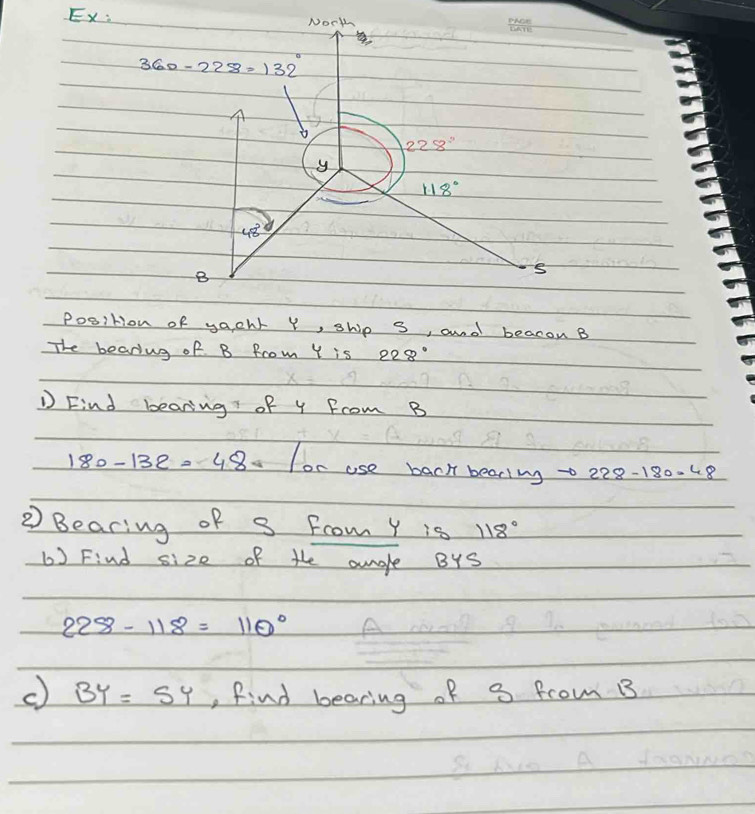 Ex:
PAGE
DATE
North
360 - 228 = 132°
228°
y
118°
48°
B
S
Position of yacht Y, ship S, and beacon B
The bearing of B from Y is 228°
1) Find bearing of Y from B
180 - 132 = 48 / or use back bearing → 228 - 180 = 48
2) Bearing of S from Y is 118°
b) Find size of the angle BYS
228 - 118 = 110°
c) BY = SY, find bearing of S from B